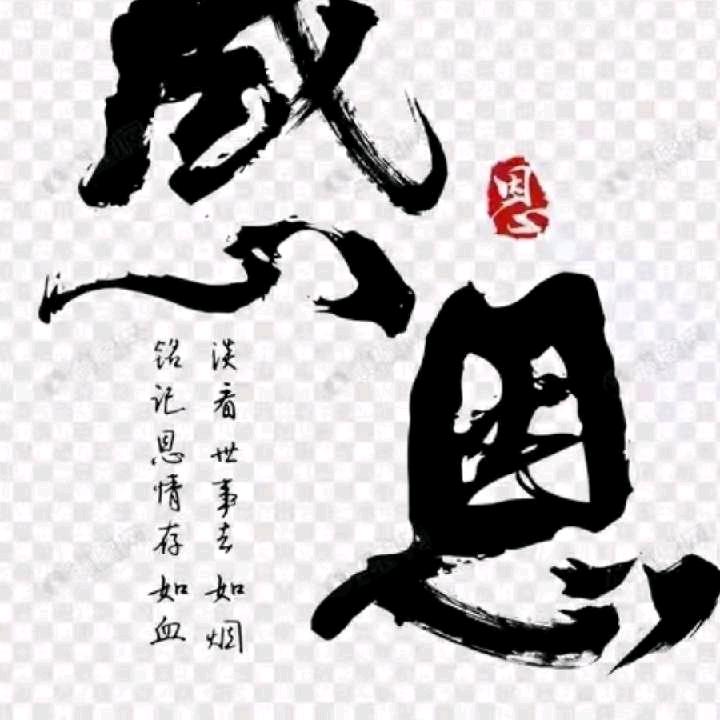 感恩
恩
淡看世事去如烟
铭记恩情存如血